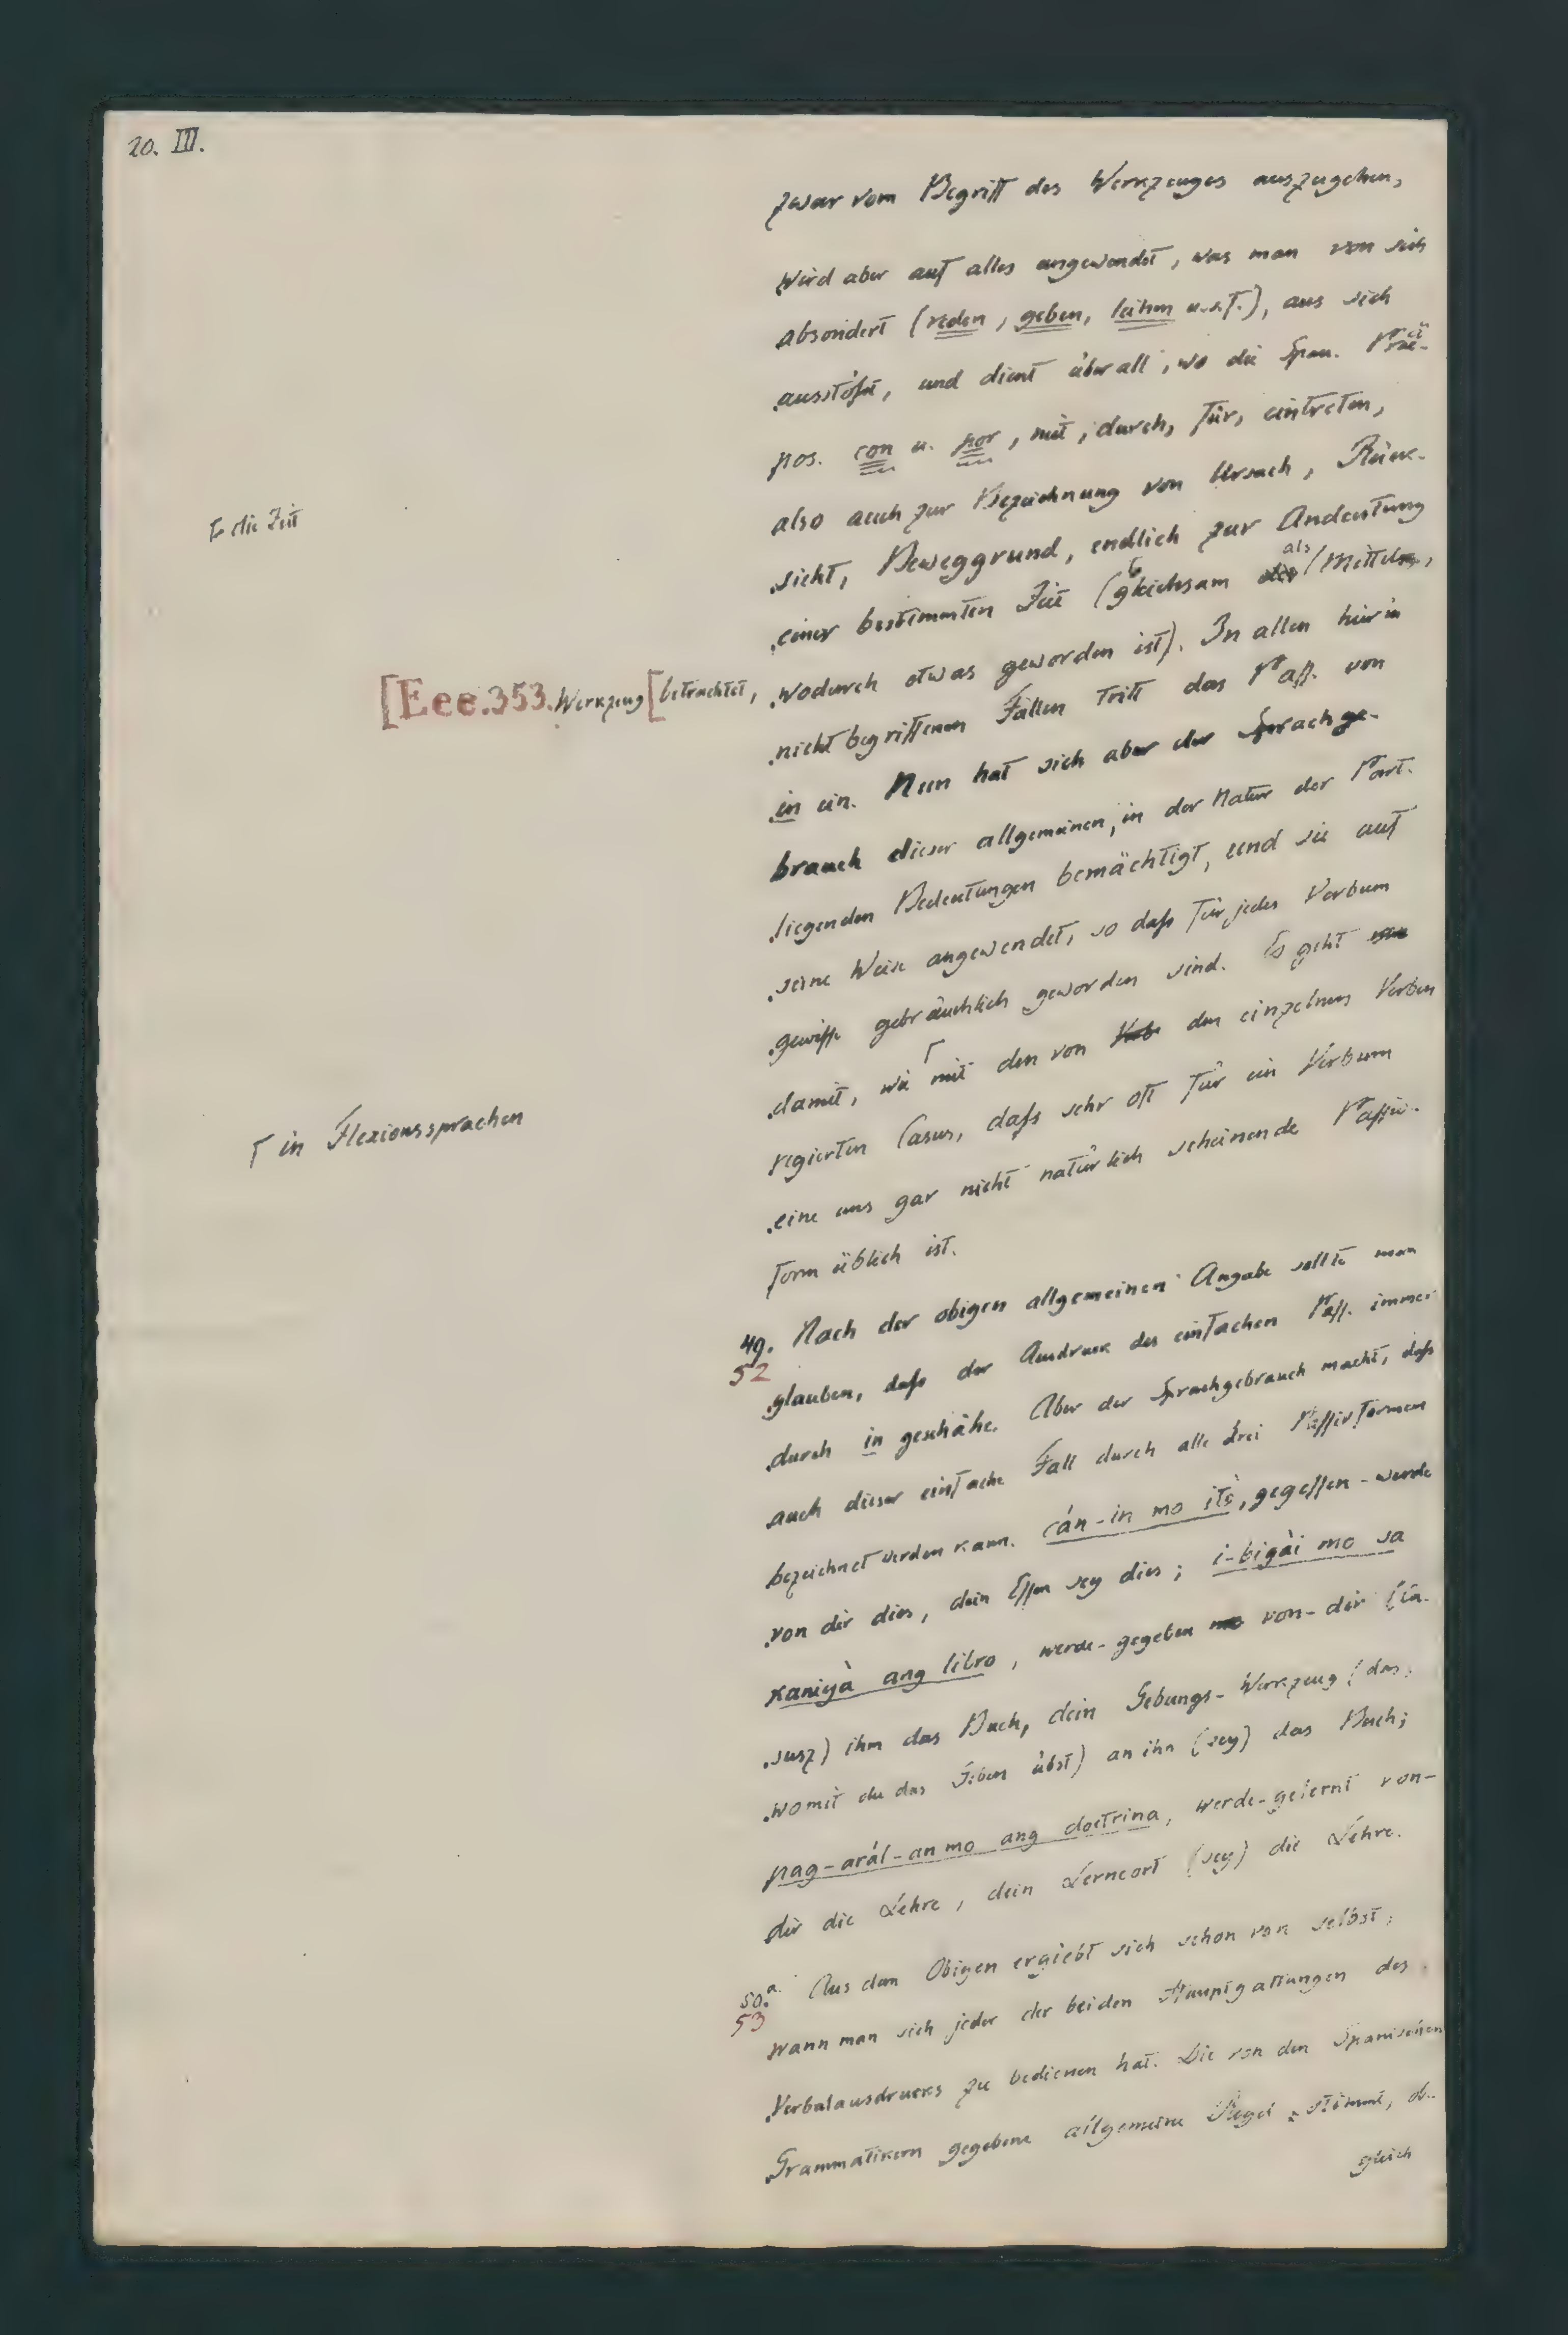 20. III.
zwar vom Begriff des Werkzeuges auszugehen,
wird aber auf alles angewendet, was man von sich
absondert (reden, geben, leihen u.s.f.), aus sich
ausstößt, und dient überall, wo die Span. Prä-
pos. con u. por, mit, durch, für, eintreten,
also auch zur Bezeichnung von Ursach, Rück-
sicht, Beweggrund, endlich zur Andeutung
einer bestimmten Zeit (gleichsam als Mittel,
Γ die Zeit
wodurch etwas geworden ist). In allen hierin
[Eee.353. Werkzeug [betrachtet,
nicht begriffenen Fällen tritt das Paß. von
in ein. Nun hat sich aber der Sprachge-
brauch dieser allgemeinen, in der Natur der Part.
liegenden Bedeutungen bemächtigt, und sie auf
seine Weise angewendet, so daß für jedes Verbum
gewisse gebräuchlich geworden sind. Es geht
damit, wie Γ mit den von den einzelnen Verben
Γ in Flexionssprachen
regierten Casus, daß sehr oft für ein Verbum
eine uns gar nicht natürlich scheinende Passiv-
form üblich ist.
49. Nach der obigen allgemeinen Angabe sollte man
52
glauben, daß der Ausdruck des einfachen Paß. immer
durch in geschähe. Aber der Sprachgebrauch macht, daß
auch dieser einfache Fall durch alle drei Passivformen
bezeichnet werden kann. cán-in mo itò, gegessen-werde
von dir dies, dein Essen sey dies; i-bigài mo sa
kaniyà ang libro, werde-gegeben von-dir (in-
susz) ihm das Buch, dein Gebungs-Werkzeug (das,
womit du das Geben übst) an ihn (sey) das Buch;
pag-arál-an mo ang doctrina, werde-gelernt von-
dir die Lehre, dein Lerneort (sey) die Lehre.
50.a. Aus dem Obigen ergiebt sich schon von selbst,
53
wann man sich jeder der beiden Hauptgattungen des
Verbalausdrucks zu bedienen hat. Die von den Spanischen
Grammatikern gegebene allgemeine Regel stimmt, ob-
gleich